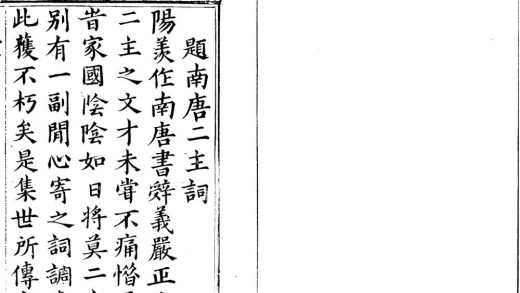 題南唐二主詞
陽羨作南唐書辤義嚴正
二主之文才未甞不痛惜
昔家國陰陰如日將莫二
别有一副閒心寄之詞調
此穫不朽矣是集世所傳